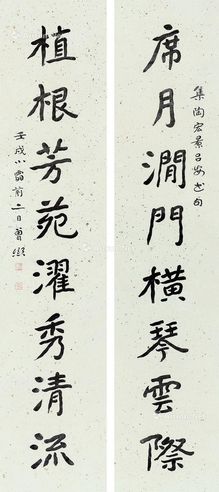 席月澗門橫琴雲際
集陶宏景呂安書句
植根芳苑濯秀清流
壬戌小雪前二日曾熙